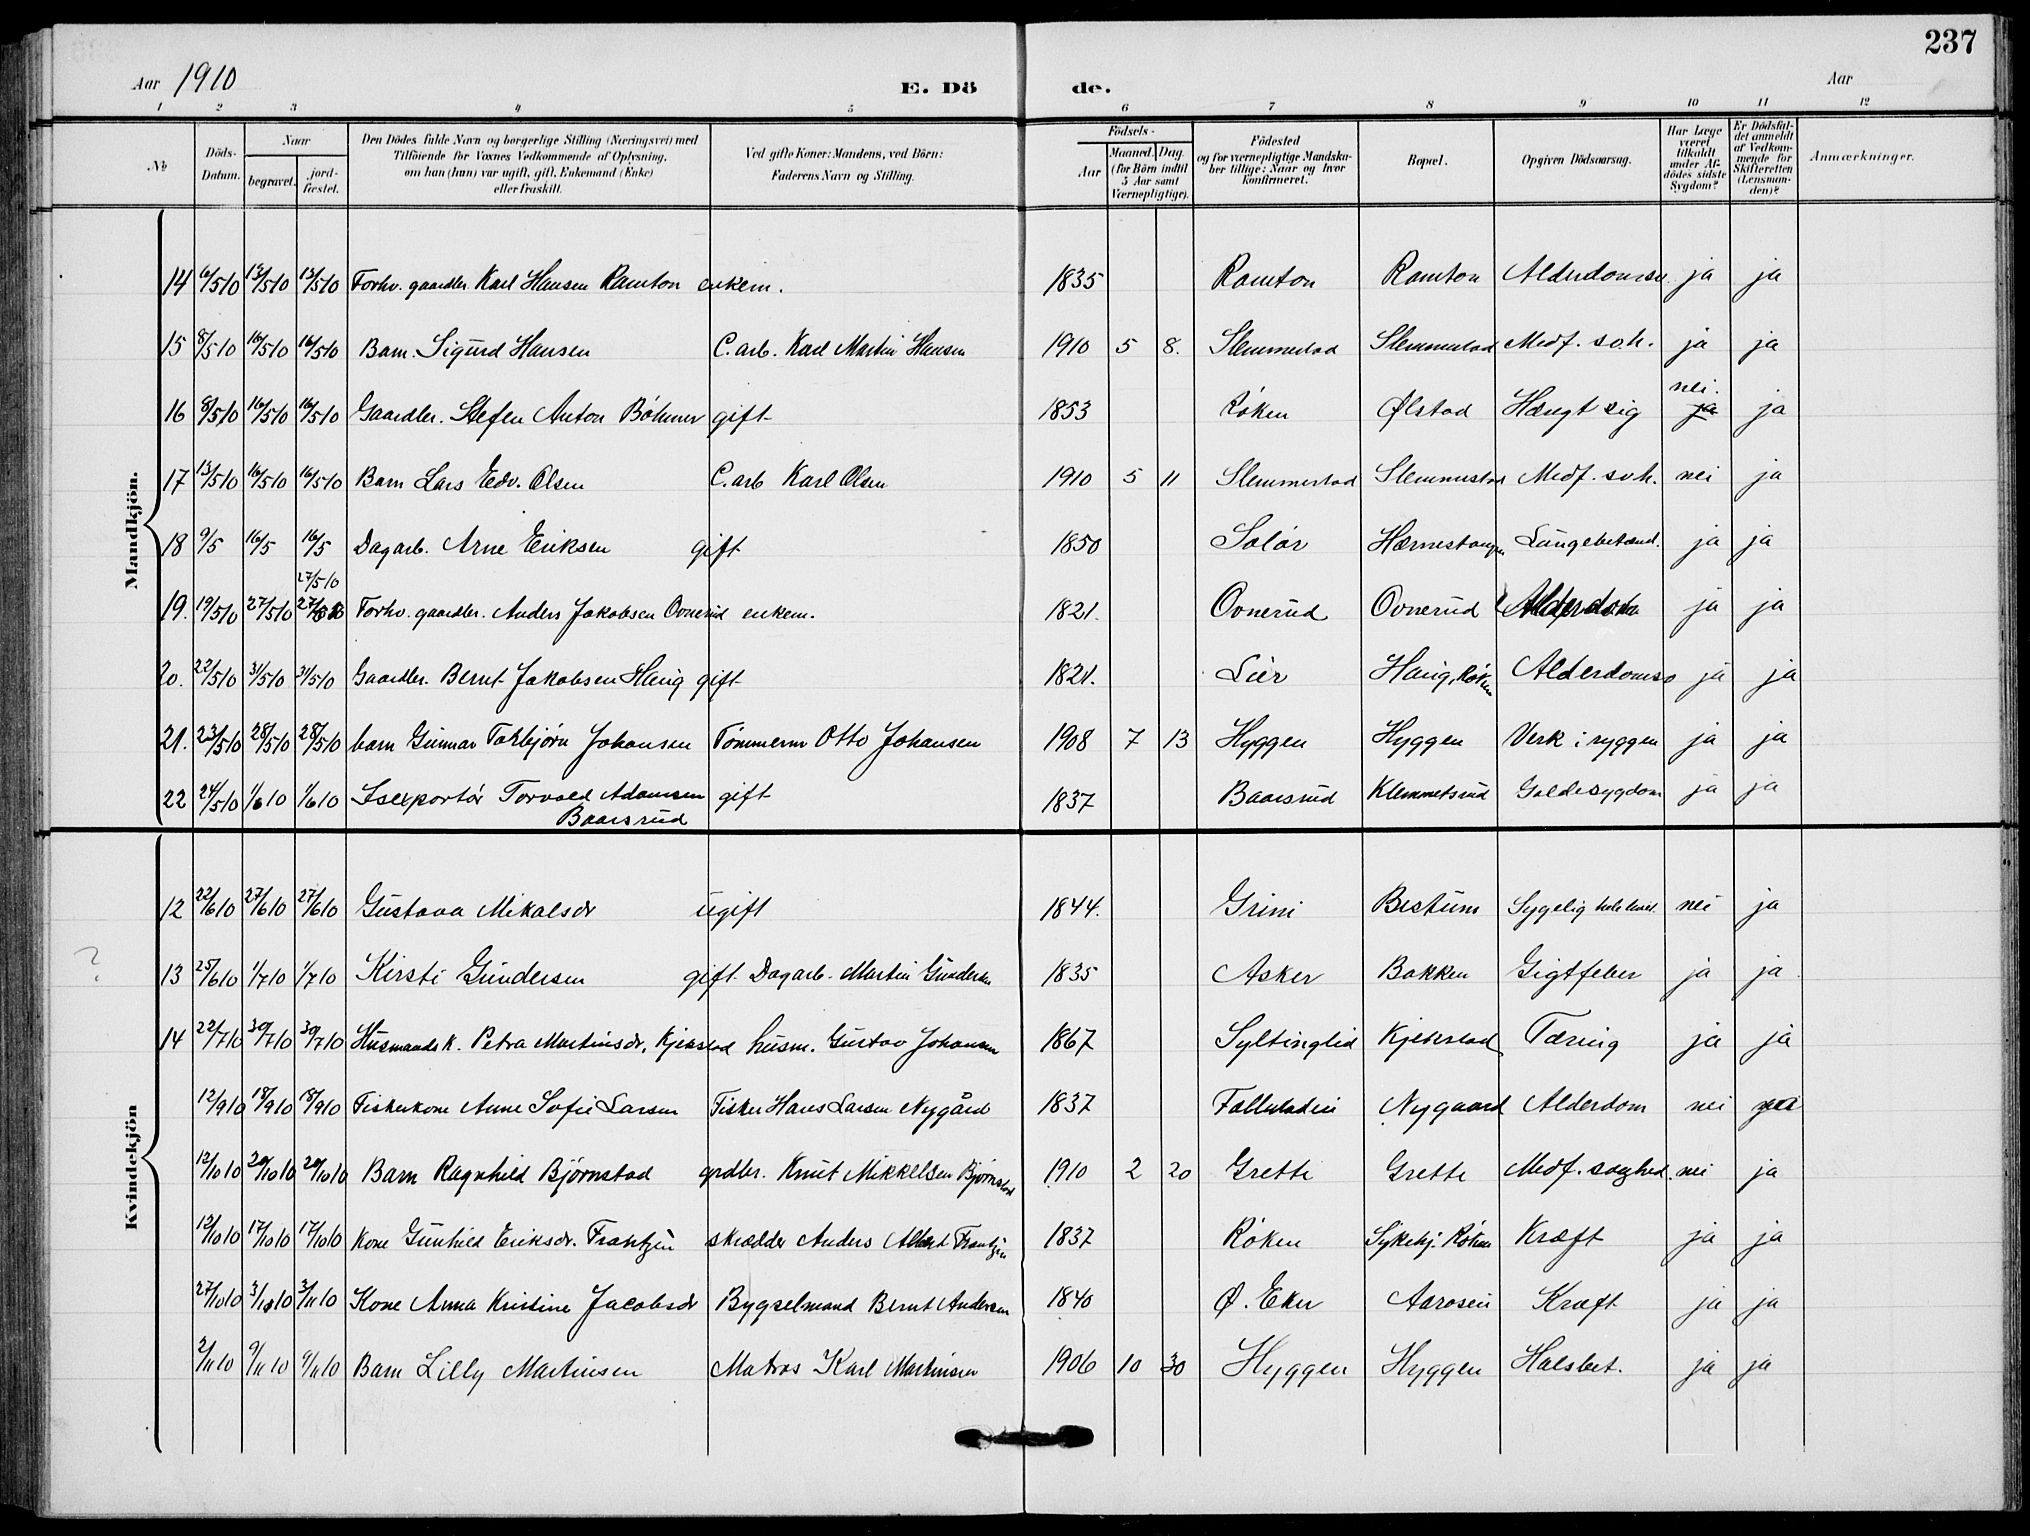 237
Aar 1910 E. Dö de. Aar
1 2 3 4 5 6 7 8 9 10 11 12
No Döds-Datum. Naar begravet. jordfæstet. Den Dödes fulde Navn og borgerlige Stilling (Næringsvei) med Tilföiende for Voxnes Vedkommende af Oplysning, om han (hun) var ugift, gift, Enkemand (Enke) eller fraskilt. Ved gifte Koner: Mandens, ved Börn: Faderens Navn og Stilling. Födsels- Aar Maaned. Dag. (for Börn indtil 5 Aar samt Værnepligtige). Födested og for værnepligtige Mandskaber tillige: Naar og hvor konfirmeret. Bopæl. Opgiven Dödsaarsag. Har Læge været tilkaldt under Afdödes sidste Sygdom? Er Dödsfaldet anmeldt af Vedkommende for Skifteretten (Lensmanden)? Anmærkninger.
Mandkjön.
14 6/5 10 13/5 10 13/5 10 Forhv. gaardbr. Karl Hansen Ramton enkem. 1835 Ramton Ramton Alderdomssv. ja ja
15 8/5 10 16/5 10 16/5 10 Barn Sigurd Hansen C. arb. Karl Martin Hansen 1910 5 8. Slemmestad Slemmestad Medf. svh. ja ja
16 8/5 10 16/5 10 16/5 10 Gaardbr. Stefen Anton Böhmer gift 1853 Röken Ølstad Hængt sig nei. ja ja
17 13/5 10 16/5 10 16/5 10 Barn Lars Edv. Olsen C. arb Karl Olsen 1910 5 11 Slemmestad Slemmestad Medf. svh. nei ja
18 9/5 16/5 16/5 Dagarb. Arne Eriksen gift 1850 Solör Hernestangen Lungebetænd. ja ja
27/5 10
19. 19/5 10 27/5 10 Forhv. gaardbr. Anders Jakobsen Ovnerud enkem. 1821. Ovnerud Ovnerud Alderdom ja ja
20. 22/5 10 31/5 10 31/5 10 Gaardbr. Bernt Jakobsen Haug gift 1821. Lier Haug, Röken Alderdomss ja ja
21. 23/5 10 28/5 10 28/5 10 barn Gunnar Torbjörn Johansen Tömmerm Otto Johansen 1908 7 13 Hyggen Hyggen Verk i ryggen ja ja
22 24/5 10 1/6 10 1/6 10 Isexportör Torvald Adamsen gift 1837 Baarsrud Klemmetsrud Galdesygdom ja ja
Baarsrud
Kvindekjön
12 22/6 10 27/6 10 27/6 10 Gustava Mikalsdr ugift 1844. Grini Bestum Sygelig hele livet. nei ja
? 13 25/6 10 1/7 10 1/7 10 Kirsti Gundersen gift Dagarb. Martin Gundersen 1835 Asker Bakken Gigtfeber ja ja
14 22/7 10 30/7 10 30/7 10 Husmandsk. Petra Martinsdr, Kjekstad husm. Gustav Johansen 1867 Syltinglid Kjekstad Tæring ja ja
12/9 10 18/9 10 18/9 10 Fiskerkone Anne Sofie Larsen Fisker Hans Larsen Nygård 1837 Nygaard Alderdom nei
12/10 10 20/10 10 20/10 10 Barn Ragnhild Björnstad grdbr. Knut Mikkelsen Björnstad 1910 2 20 Grette Grette Medf. svaghed. nei ja
12/10 10 17/10 10 17/10 10 Kone Gunhild Eriksdr. Frantzen skrædder Anders Albert Frantzen 1837 Röken Sykehj. Röken Kræft ja ja
27/10 10 3/10 10 3/11 10 Kone Anna Kristine Jacobsdr Bygselmand Bernt Andersen 1840 Ø. Eker Aarosen Kræft ja ja
2/11 10 9/11 10 9/11 10 Barn Lilly Martinsen Matros Karl Martinsen 1906 10 30 Hyggen Hyggen Halsbet. ja ja